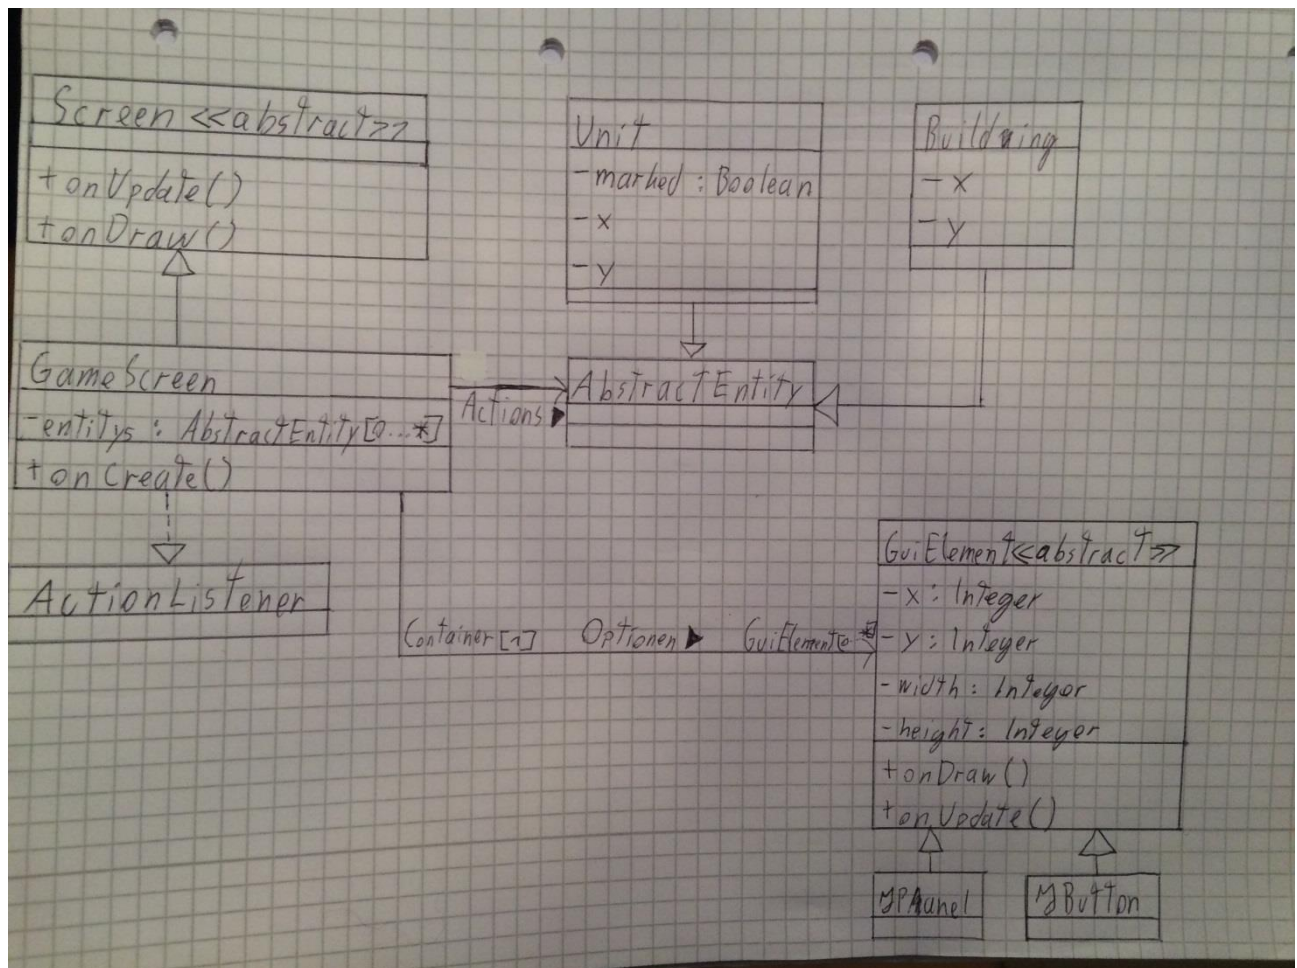 Screen <<abstract>>
+ onUpdate()
+ onDraw()
Unit
- marked : Boolean
- x
- y
Building
- x
- y
GameScreen
- entitys : AbstractEntity[0...*]
+ onCreate()
Actions ▶
AbstractEntity
ActionListener
Container[1] Optionen ▶ GuiElement[0..*]
GuiElement<<abstract>>
- x : Integer
- y : Integer
- width : Integer
- height : Integer
+ onDraw()
+ onUpdate()